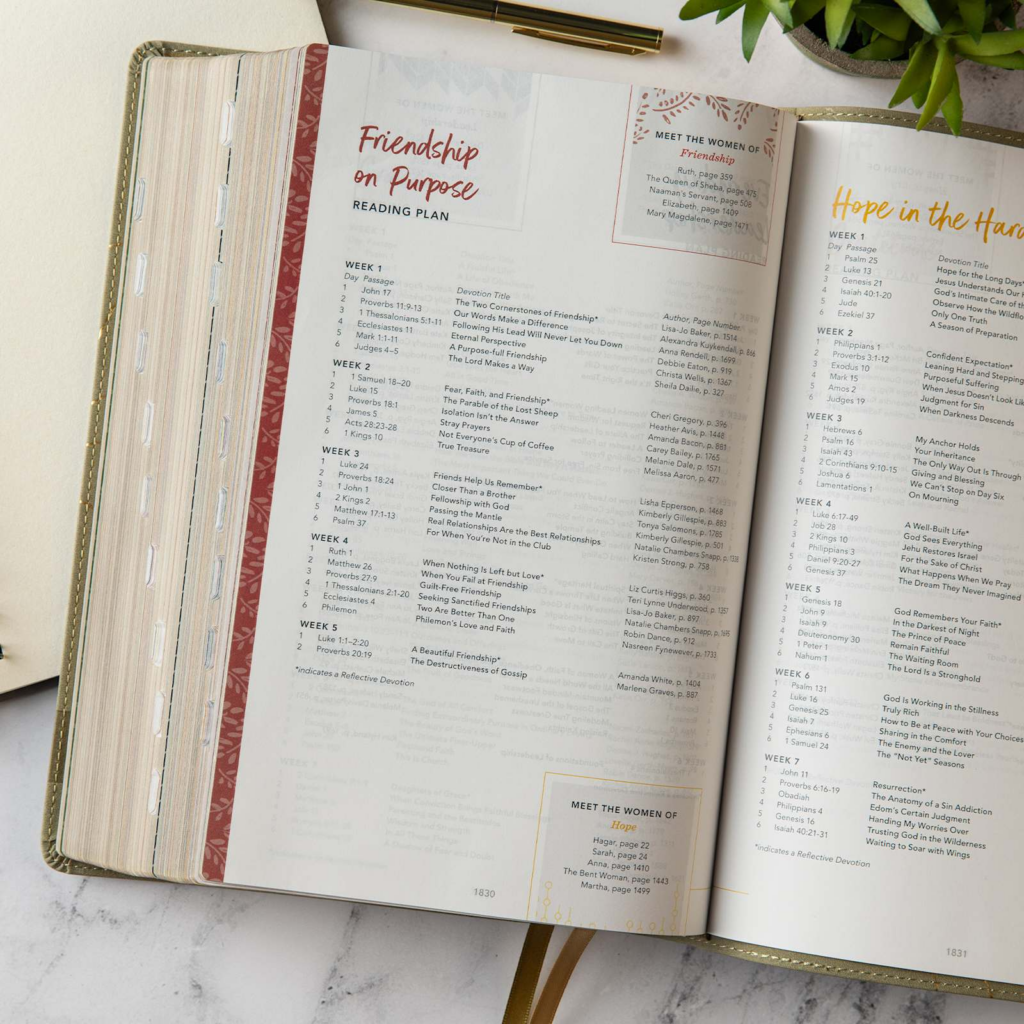 Friendship
on Purpose
READING PLAN
MEET THE WOMEN OF
Friendship
Ruth, page 359
The Queen of Sheba, page 475
Naaman's Servant, page 508
Elizabeth, page 1409
Mary Magdalene, page 1471
WEEK 1
Day Passage Devotion Title Author, Page Number
1 John 17 The Two Cornerstones of Friendship* Lisa-Jo Baker, p. 1514
2 Proverbs 11:9-13 Our Words Make a Difference Alexandra Kuykendall, p.
3 1 Thessalonians 5:1-11 Following His Lead Will Never Let You Down Anna Rendell, p. 1699
4 Ecclesiastes 11 Eternal Perspective Debbie Eaton, p. 919
5 Mark 1:1-11 A Purpose-full Friendship Christa Wells, p. 1367
6 Judges 4–5 The Lord Makes a Way Sheila Dailie, p. 327
WEEK 2
1 1 Samuel 18–20 Fear, Faith, and Friendship* Cheri Gregory, p. 396
2 Luke 15 The Parable of the Lost Sheep Heather Avis, p. 1448
3 Proverbs 18:1 Isolation Isn't the Answer Amanda Bacon, p. 883
4 James 5 Stray Prayers Carey Bailey, p. 1765
5 Acts 28:23-28 Not Everyone's Cup of Coffee Melanie Dale, p. 1571
6 1 Kings 10 True Treasure Melissa Aaron, p. 477
WEEK 3
1 Luke 24 Friends Help Us Remember* Lisha Epperson, p. 1468
2 Proverbs 18:24 Closer Than a Brother Kimberly Gillespie, p. 883
3 1 John 1 Fellowship with God Tonya Salomons, p. 1785
4 2 Kings 2 Passing the Mantle Kimberly Gillespie, p. 501
5 Matthew 17:1-13 Real Relationships Are the Best Relationships Natalie Chambers Snapp, p.
6 Psalm 37 For When You're Not in the Club Kristen Strong, p. 758
WEEK 4
1 Ruth 1 When Nothing Is Left but Love* Liz Curtis Higgs, p. 360
2 Matthew 26 When You Fail at Friendship Teri Lynne Underwood, p. 1357
3 Proverbs 27:9 Guilt-Free Friendship Lisa-Jo Baker, p. 897
4 1 Thessalonians 2:1-20 Seeking Sanctified Friendships Natalie Chambers Snapp, p.
5 Ecclesiastes 4 Two Are Better Than One Robin Dance, p. 912
6 Philemon Philemon's Love and Faith Nasreen Fynewever, p. 1733
WEEK 5
1 Luke 1:1–2:20 A Beautiful Friendship* Amanda White, p. 1404
2 Proverbs 20:19 The Destructiveness of Gossip Marlena Graves, p. 887
*indicates a Reflective Devotion
MEET THE WOMEN OF
Hope
Hagar, page 22
Sarah, page 24
Anna, page 1410
The Bent Woman, page 1443
Martha, page 1499
1830
Hope in the Hard
WEEK 1
Day Passage Devotion Title
1 Psalm 25 Hope for the Long Days*
2 Luke 13 Jesus Understands Our
3 Genesis 21 God's Intimate Care of
4 Isaiah 40:1-20 Observe How the Wildflo
5 Jude Only One Truth
6 Ezekiel 37 A Season of Preparation
WEEK 2
1 Philippians 1 Confident Expectation*
2 Proverbs 3:1-12 Leaning Hard and Stepping
3 Exodus 10 Purposeful Suffering
4 Mark 15 When Jesus Doesn't Look Li
5 Amos 2 Judgment for Sin
6 Judges 19 When Darkness Descends
WEEK 3
1 Hebrews 6 My Anchor Holds
2 Psalm 16 Your Inheritance
3 Isaiah 43 The Only Way Out Is Through
4 2 Corinthians 9:10-15 Giving and Blessing
5 Joshua 6 We Can't Stop on Day Six
6 Lamentations 1 On Mourning
WEEK 4
1 Luke 6:17-49 A Well-Built Life*
2 Job 28 God Sees Everything
3 2 Kings 10 Jehu Restores Israel
4 Philippians 3 For the Sake of Christ
5 Daniel 9:20-27 What Happens When We Pray
6 Genesis 37 The Dream They Never Imagined
WEEK 5
1 Genesis 18 God Remembers Your Faith*
2 John 9 In the Darkest of Night
3 Isaiah 9 The Prince of Peace
4 Deuteronomy 30 Remain Faithful
5 1 Peter 1 The Waiting Room
6 Nahum 1 The Lord Is a Stronghold
WEEK 6
1 Psalm 131 God Is Working in the Stillness
2 Luke 16 Truly Rich
3 Genesis 25 How to Be at Peace with Your Choices
4 Isaiah 7 Sharing in the Comfort
5 Ephesians 6 The Enemy and the Lover
6 1 Samuel 24 The "Not Yet" Seasons
WEEK 7
1 John 11 Resurrection*
2 Proverbs 6:16-19 The Anatomy of a Sin Addiction
3 Obadiah Edom's Certain Judgment
4 Philippians 4 Handing My Worries Over
5 Genesis 16 Trusting God in the Wilderness
6 Isaiah 40:21-31 Waiting to Soar with Wings
*indicates a Reflective Devotion
1831